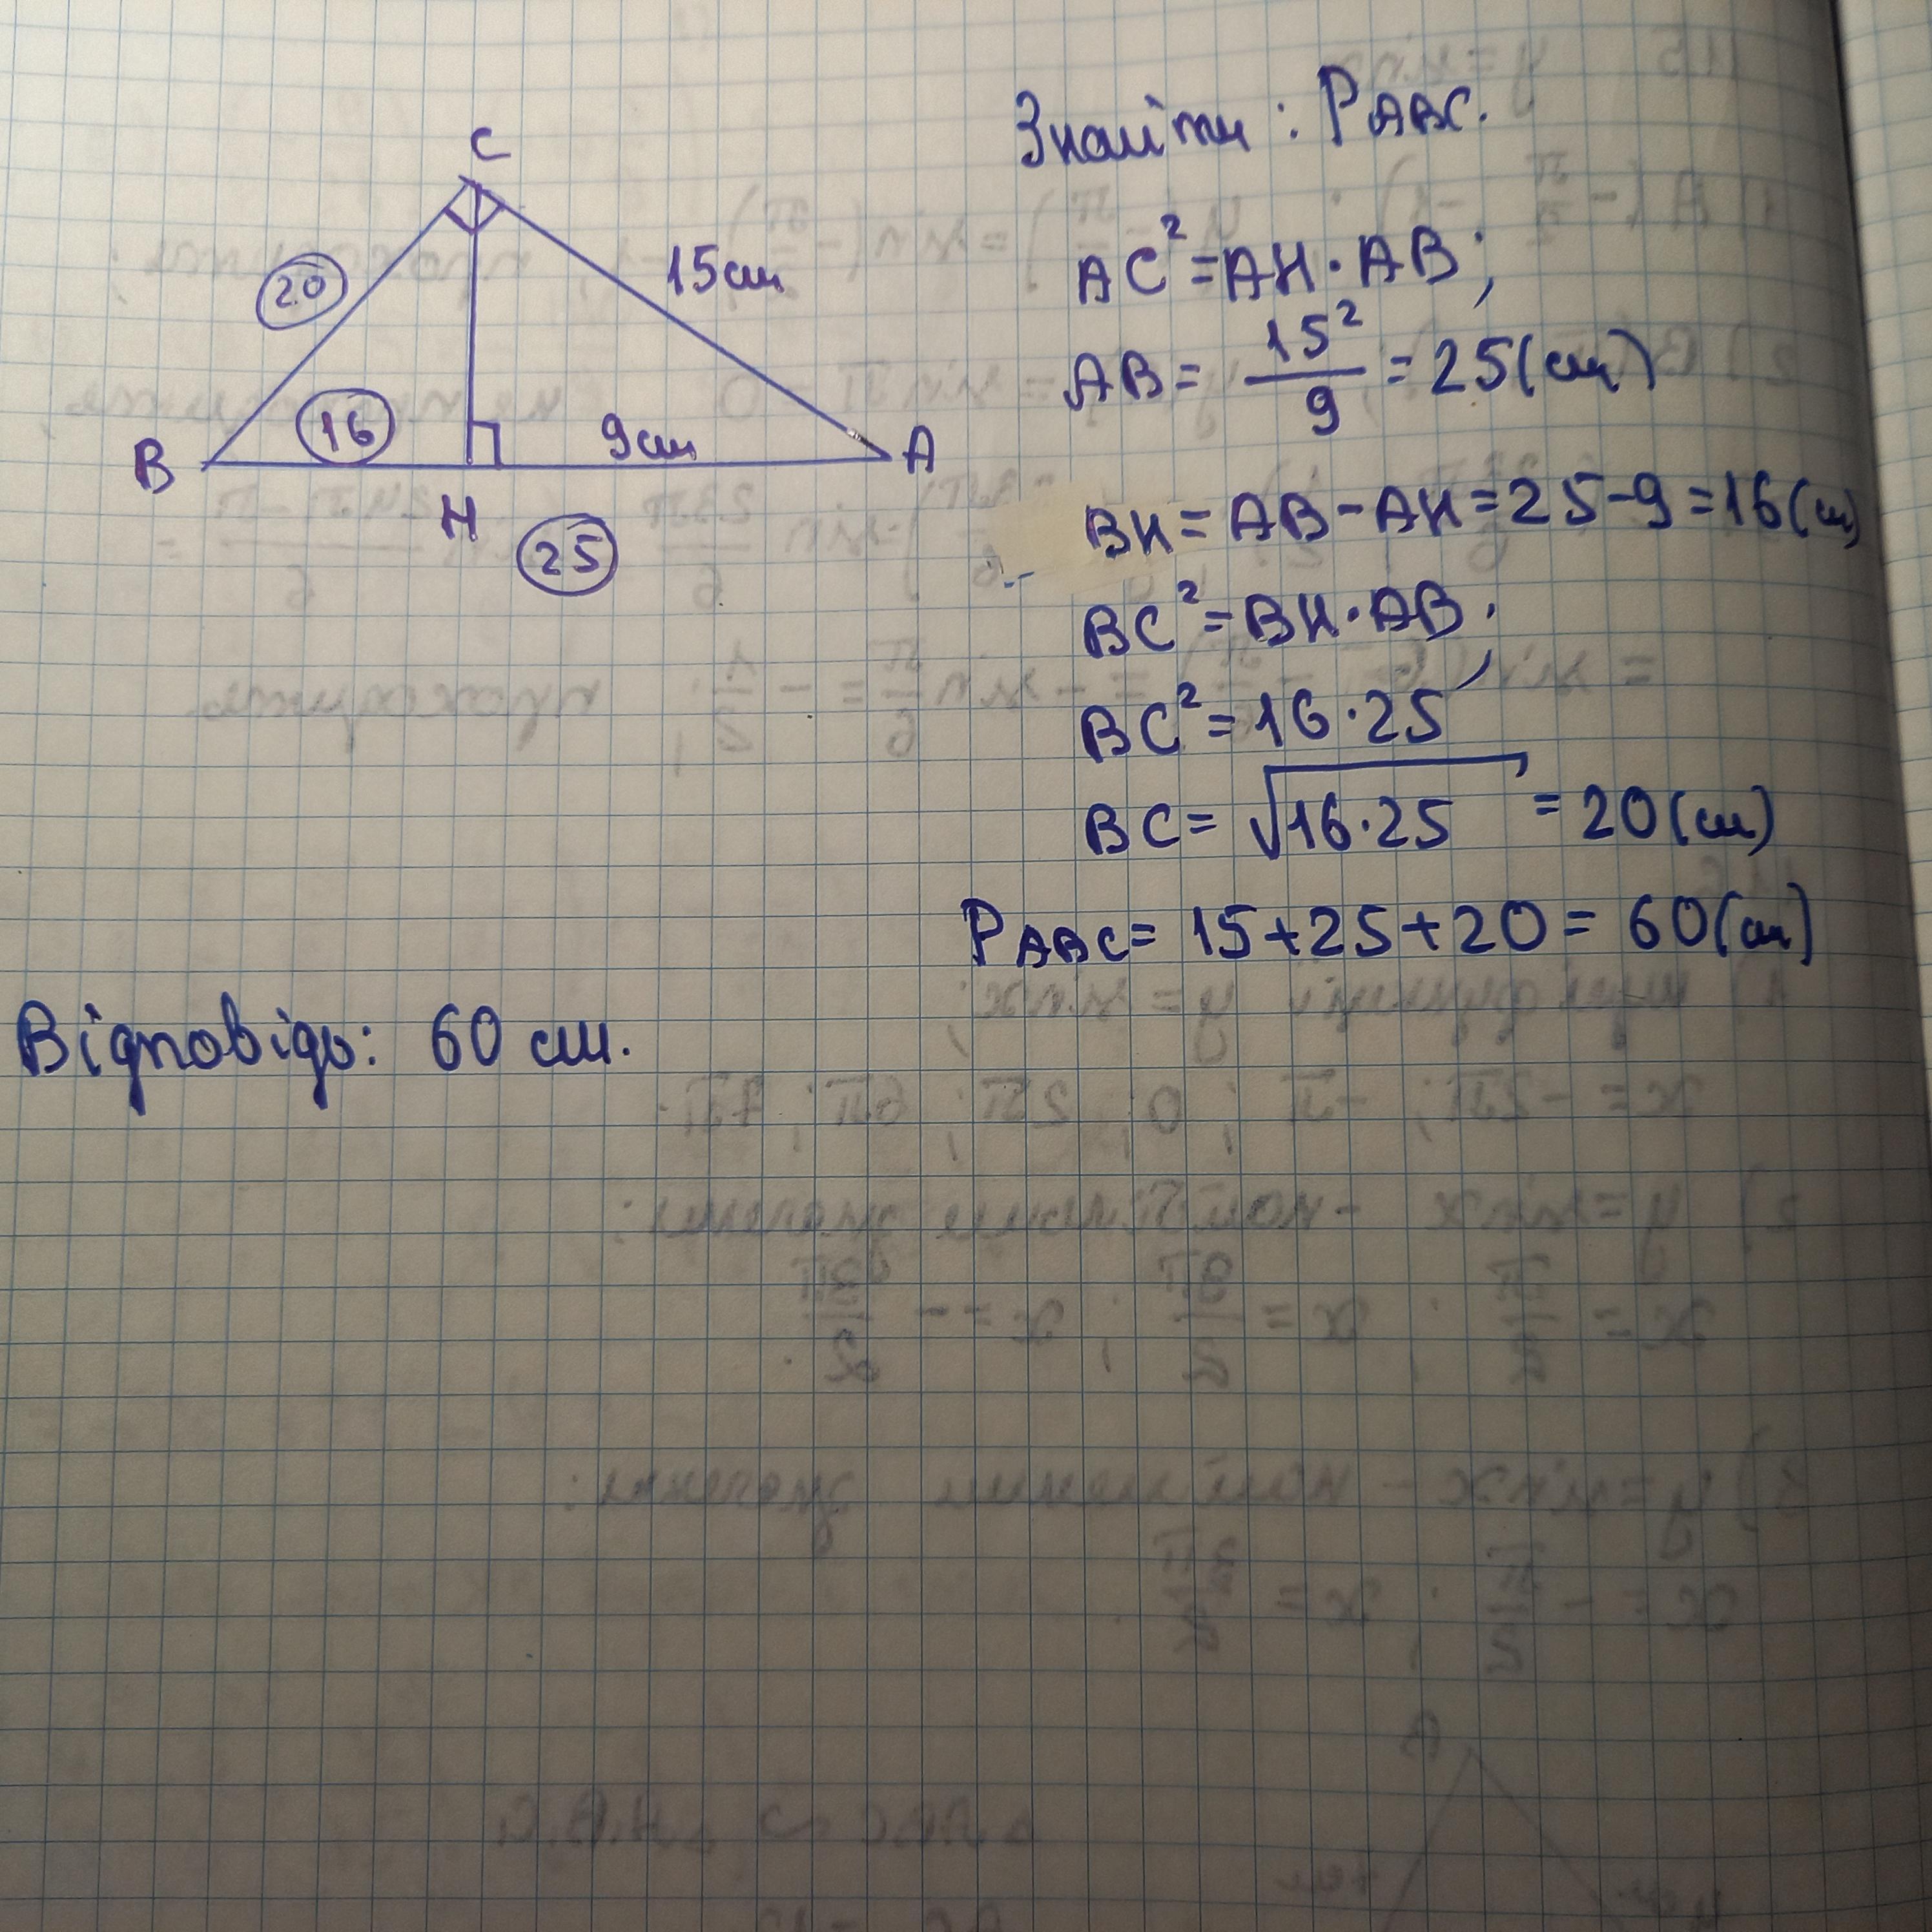 C
20
15см
16
9см
B
A
H
25
Знайти: PABC.
AC²=AH·AB;
AB= 15²/9 =25(см)
BH=AB-AH=25-9=16(см)
BC²=BH·AB;
BC²=16·25
BC=√16·25 =20(см)
PABC= 15+25+20= 60(см)
Відповідь: 60 см.